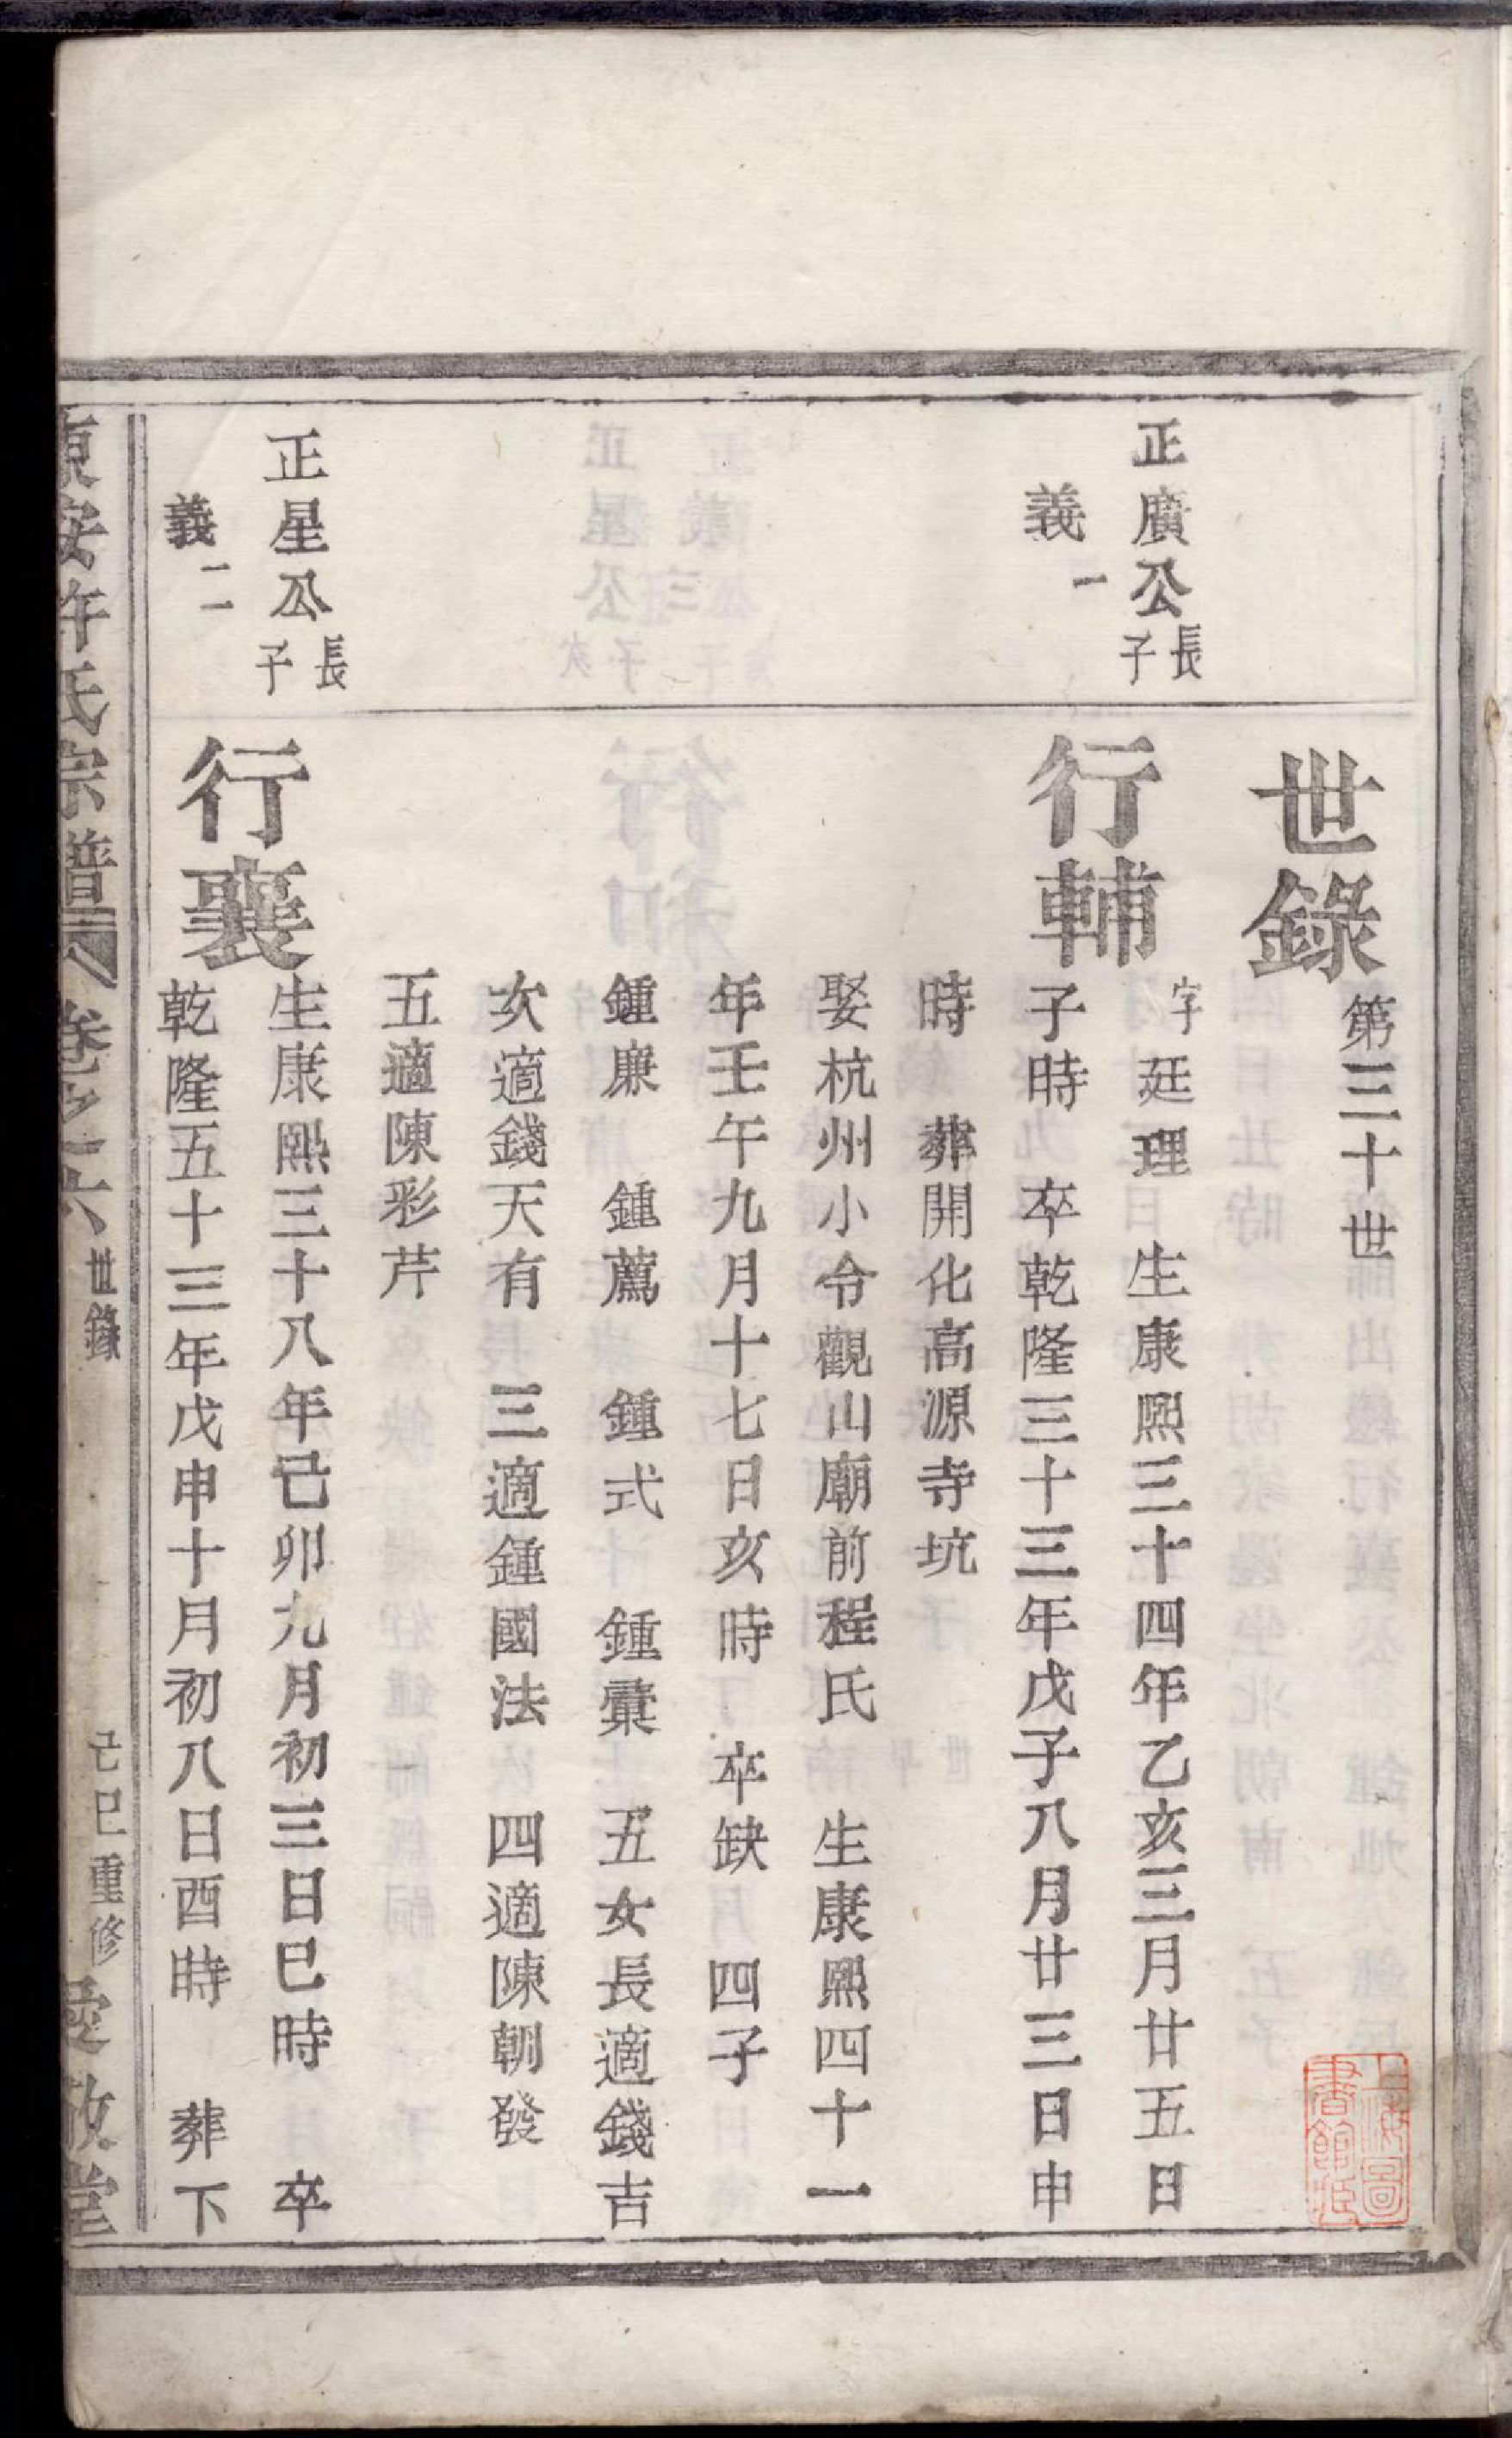 世錄 第三十世
正廣公長子
義一
行輔 字廷理 生康熙三十四年乙亥三月廿五日
子時 卒乾隆三十三年戊子八月廿三日申
時 葬開化高源寺坑
娶杭州小令觀山廟前程氏 生康熙四十一
年壬午九月十七日亥時 卒缺 四子
鍾廉 鍾薦 鍾式 鍾彚 五女長適錢吉
次適錢天有 三適鍾國法 四適陳朝發
五適陳彩芹
正星公長子
義二
行襄 生康熙三十八年己卯九月初三日巳時 卒
乾隆五十三年戊申十月初八日酉時 葬下
東安許氏宗譜 卷之六 世錄 己巳重修 愛敬堂
上海圖書館藏